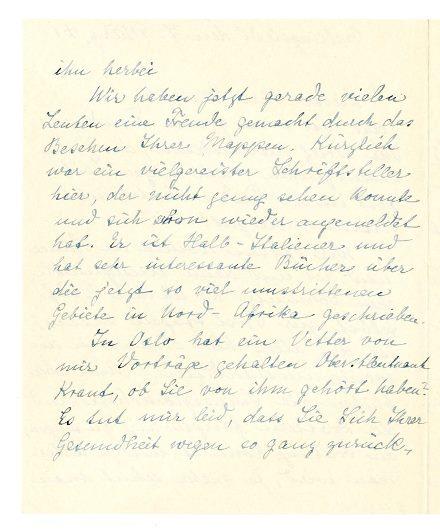 ihn herbei
Wir haben jetzt gerade vielen
Leuten eine Freude gemacht durch das
Besehen Ihrer Mappen. Kürzlich
war ein vielgereister Schriftsteller
hier, der nicht genug sehen konnte
und sich schon wieder angemeldet
hat. Er ist Halb-Italiener und
hat sehr interessante Bücher über
die jetzt so viel umstrittenen
Gebiete in Nord-Afrika geschrieben.
In Oslo hat ein Vetter von
mir Vorträge gehalten Oberstleutnant
, ob Sie von ihm gehört haben?
Es tut mir leid, dass Sie Sich Ihrer
Gesundheit wegen so ganz zurück-